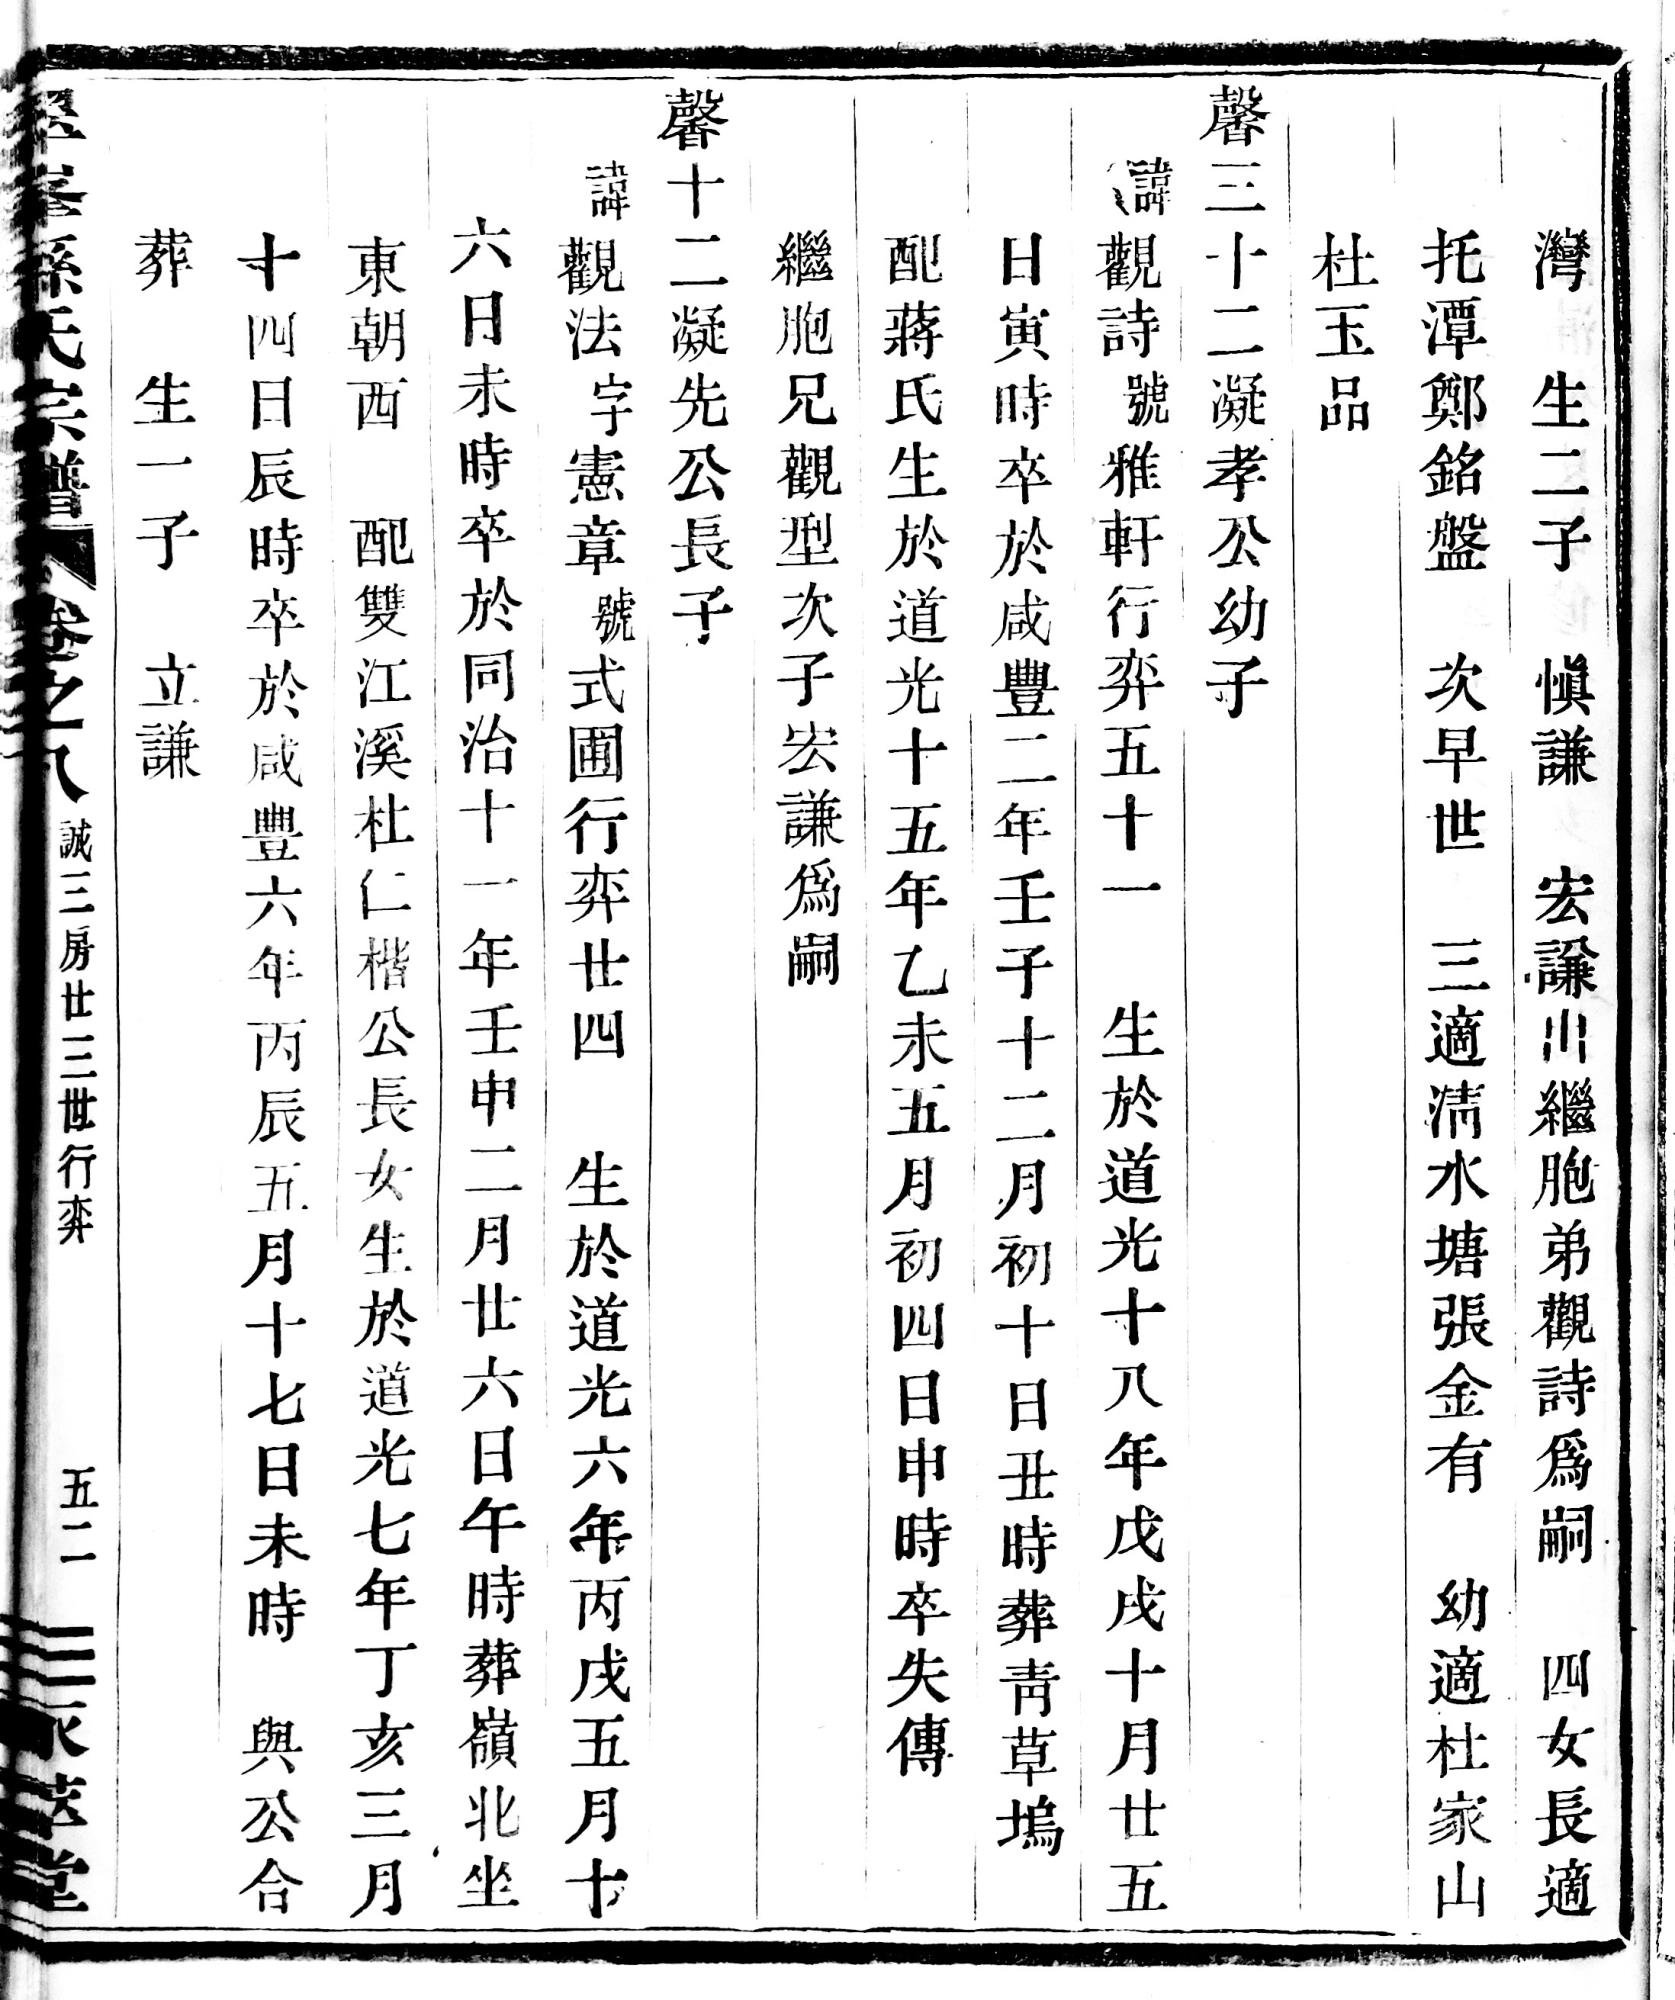 灣　生二子　愼謙　宏謙出繼胞弟觀詩爲嗣　四女長適
托潭鄭銘盤　次早世　三適淸水塘張金有　幼適杜家山
杜玉品
馨三十二凝孝公幼子
諱觀詩號雅軒行弈五十一　生於道光十八年戊戌十月廿五
日寅時卒於咸豐二年壬子十二月初十日丑時葬靑草塢
配蔣氏生於道光十五年乙未五月初四日申時卒失傳
繼胞兄觀型次子宏謙爲嗣
馨十二凝先公長子
諱觀法字憲章號式圃行弈廿四　生於道光六年丙戌五月十
六日未時卒於同治十一年壬申二月廿六日午時葬嶺北坐
東朝西　配雙江溪杜仁楷公長女生於道光七年丁亥三月
十四日辰時卒於咸豐六年丙辰五月十七日未時　與公合
葬　生一子　立謙
峯孫氏宗譜　卷之八　誠三房廿三世行弈　五二　萃堂